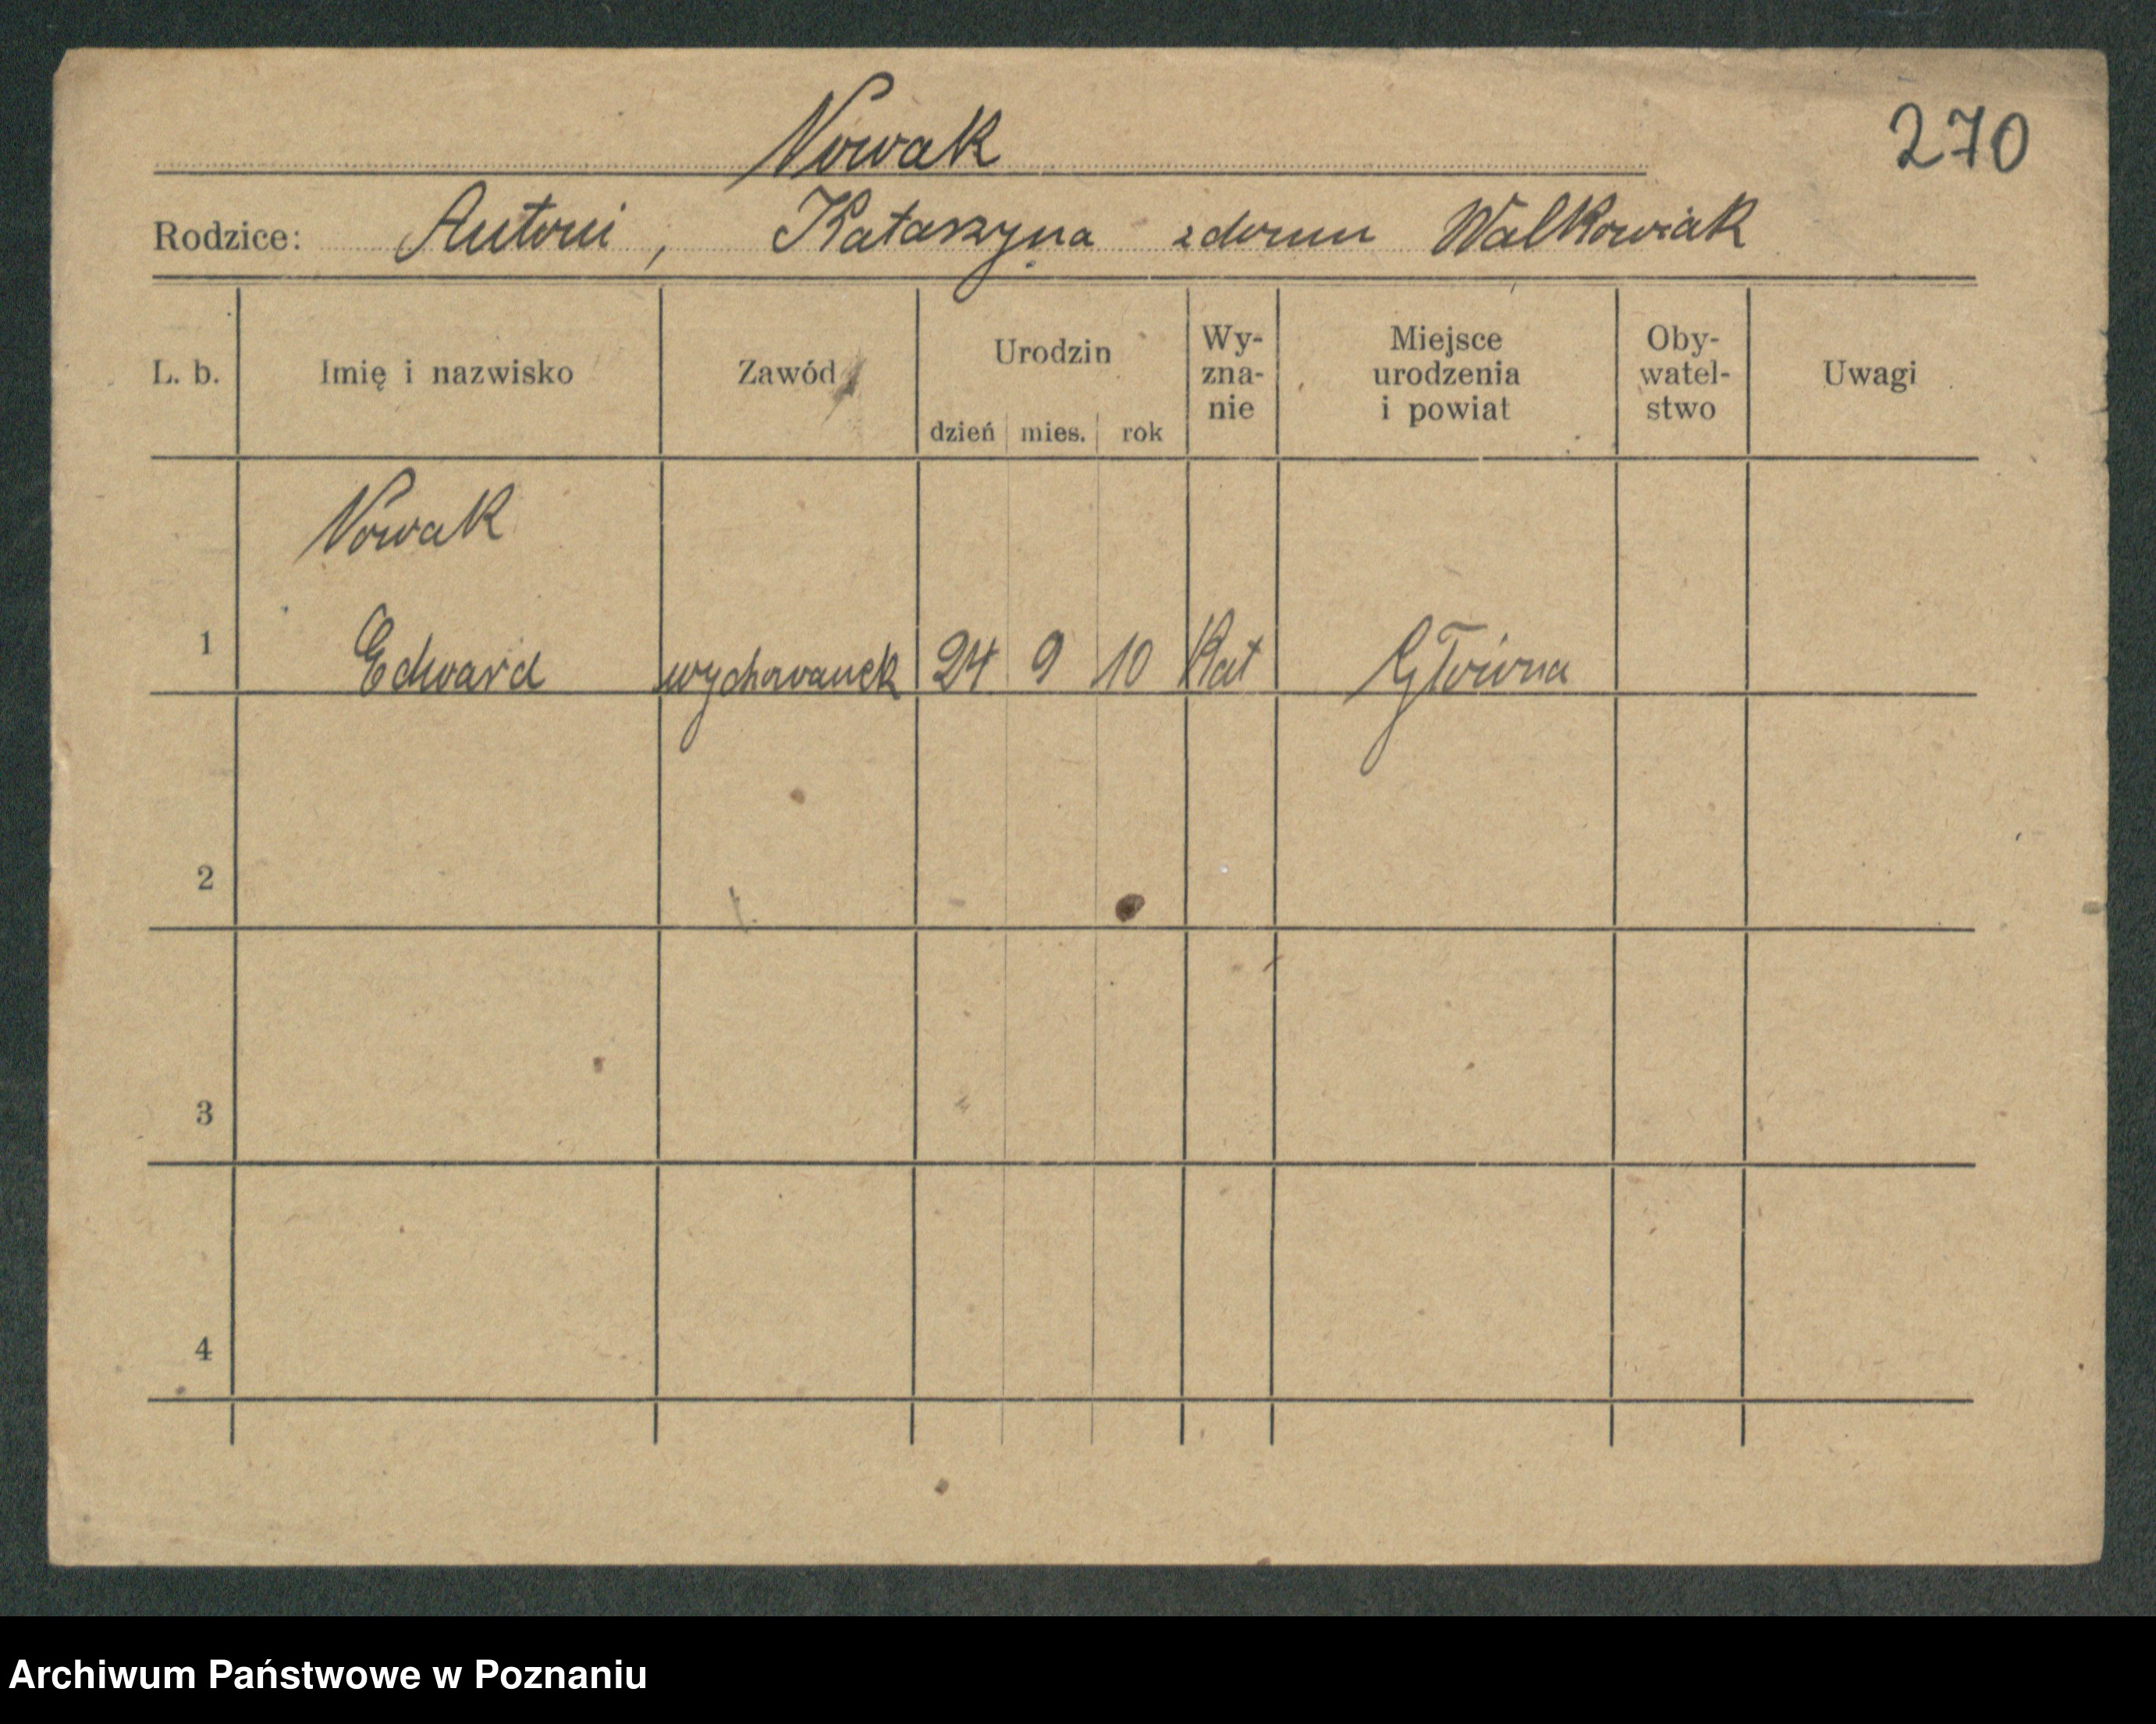 Nowak
270
Rodzice: Antoni, Katarzyna z domu Walkowiak
L. b. Imię i nazwisko Zawód Urodzin dzień mies. rok Wy-zna-nie Miejsce urodzenia i powiat Oby-watel-stwo Uwagi
Nowak
1 Edward wychowanek 24 9 10 Kat Główna
2
3
4
Archiwum Państwowe w Poznaniu